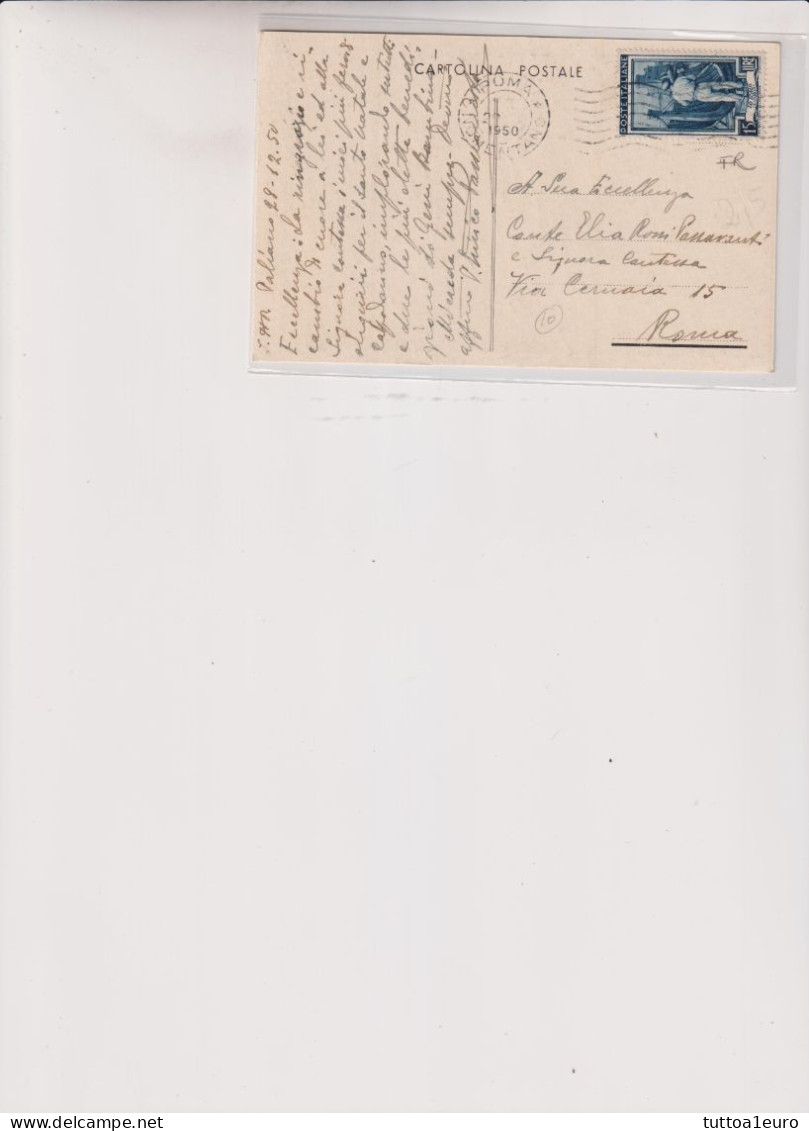 CARTOLINA POSTALE
ROMA
1950
POSTE ITALIANE
LIRE
15
FR
2,5
A Sua Eccellenza
Conte Elia Rossi Passavanti
e Signora Contessa
Via Cernaia 15
Roma
10
Paliano 28-12-50
Eccellenza: La ringrazio e ri-
cambio di cuore a Lei ed alla
Signora Contessa i voti più fervidi
auguri per il Santo Natale e
Capodanno, implorando su tutti
e due le più elette benedi-
zioni di Gesù Bambino.
Mi creda sempre devmo
affmo P.
tuttoa1euro